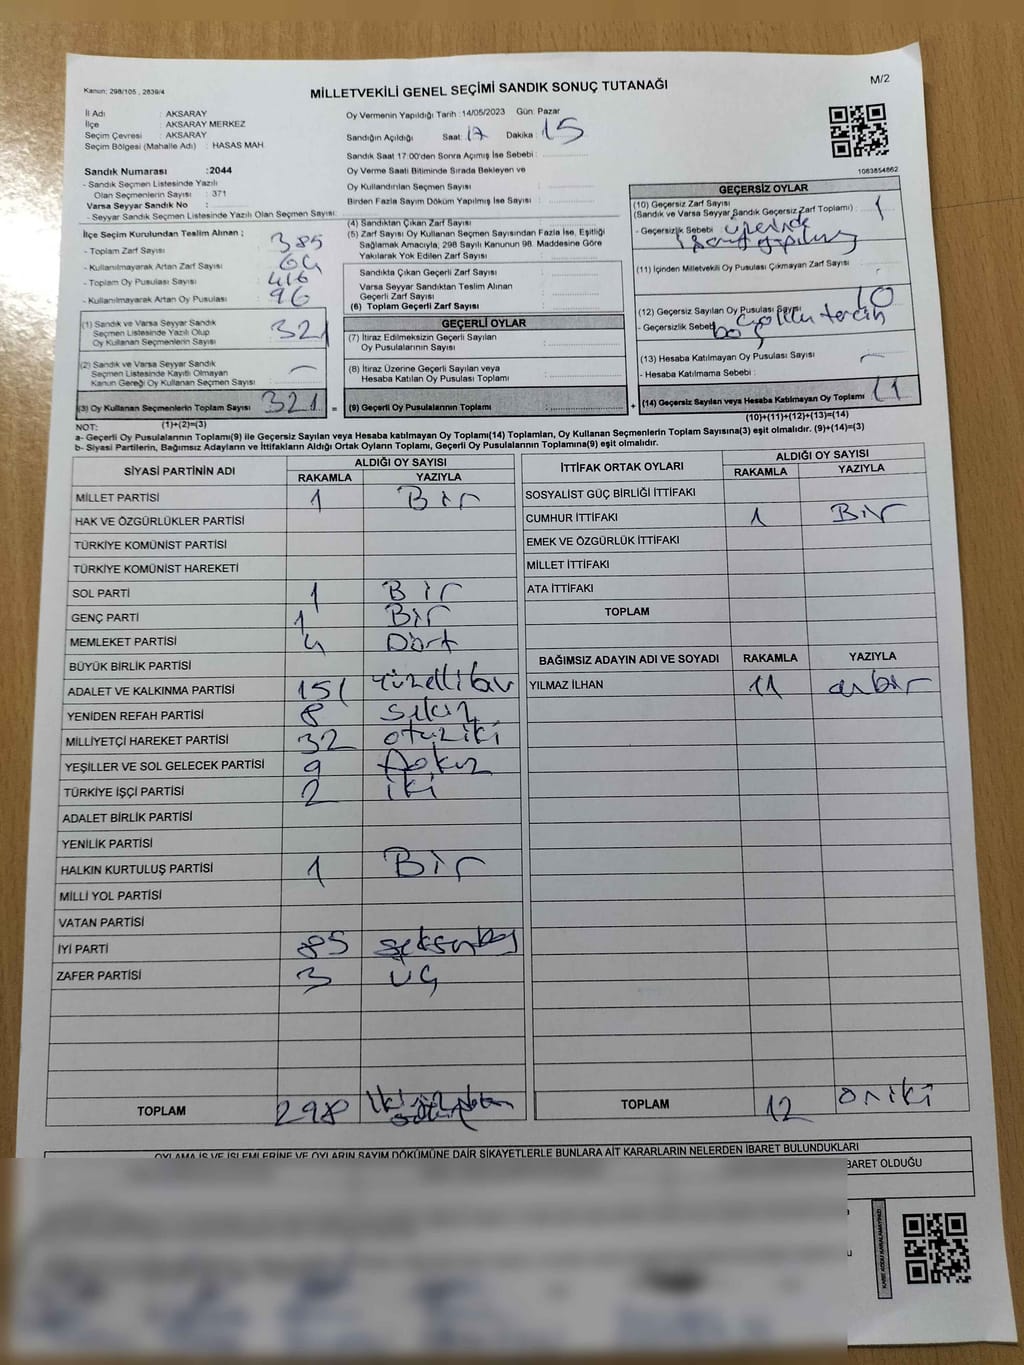 Kanun: 298/105 , 2839/4
MİLLETVEKİLİ GENEL SEÇİMİ SANDIK SONUÇ TUTANAĞI
M/2
İl Adı : AKSARAY
İlçe : AKSARAY MERKEZ
Seçim Çevresi : AKSARAY
Seçim Bölgesi (Mahalle Adı) : HASAS MAH.
Oy Vermenin Yapıldığı Tarih :14/05/2023 Gün: Pazar
Sandığın Açıldığı Saat: 17 Dakika: 15
Sandık Saat 17:00'den Sonra Açımış İse Sebebi :
Oy Verme Saati Bitiminde Sırada Bekleyen ve
Oy Kullandırılan Seçmen Sayısı :
Birden Fazla Sayım Döküm Yapılmış İse Sayısı :
1083854862
Sandık Numarası :2044
- Sandık Seçmen Listesinde Yazılı
Olan Seçmenlerin Sayısı : 371
Varsa Seyyar Sandık No :
- Seyyar Sandık Seçmen Listesinde Yazılı Olan Seçmen Sayısı:
İlçe Seçim Kurulundan Teslim Alınan ;
- Toplam Zarf Sayısı : 385
- Kullanılmayarak Artan Zarf Sayısı : 64
- Toplam Oy Pusulası Sayısı : 416
- Kullanılmayarak Artan Oy Pusulası : 96
(1) Sandık ve Varsa Seyyar Sandık
Seçmen Listesinde Yazılı Olup
Oy Kullanan Seçmenlerin Sayısı : 321
(2) Sandık ve Varsa Seyyar Sandık
Seçmen Listesinde Kayıtlı Olmayan
Kanun Gereği Oy Kullanan Seçmen Sayısı : —
(3) Oy Kullanan Seçmenlerin Toplam Sayısı : 321 =
(1)+(2)=(3)
(4) Sandıktan Çıkan Zarf Sayısı :
(5) Zarf Sayısı Oy Kullanan Seçmen Sayısından Fazla İse, Eşitliği
Sağlamak Amacıyla, 298 Sayılı Kanunun 98. Maddesine Göre
Yakılarak Yok Edilen Zarf Sayısı :
Sandıkta Çıkan Geçerli Zarf Sayısı :
Varsa Seyyar Sandıktan Teslim Alınan
Geçerli Zarf Sayısı :
(6) Toplam Geçerli Zarf Sayısı :
GEÇERLİ OYLAR
(7) İtiraz Edilmeksizin Geçerli Sayılan
Oy Pusulalarının Sayısı :
(8) İtiraz Üzerine Geçerli Sayılan veya
Hesaba Katılan Oy Pusulası Toplamı :
(9) Geçerli Oy Pusulalarının Toplamı : +
GEÇERSİZ OYLAR
(10) Geçersiz Zarf Sayısı
(Sandık ve Varsa Seyyar Sandık Geçersiz Zarf Toplamı) : 1
- Geçersizlik Sebebi : üzerinde
(11) İçinden Milletvekili Oy Pusulası Çıkmayan Zarf Sayısı :
(12) Geçersiz Sayılan Oy Pusulası Sayısı : 10
- Geçersizlik Sebebi : çoklu tercih
boş
(13) Hesaba Katılmayan Oy Pusulası Sayısı : —
- Hesaba Katılmama Sebebi :
(14) Geçersiz Sayılan veya Hesaba Katılmayan Oy Toplamı : 11
(10)+(11)+(12)+(13)=(14)
NOT:
a- Geçerli Oy Pusulalarının Toplamı(9) ile Geçersiz Sayılan veya Hesaba katılmayan Oy Toplamı(14) Toplamları, Oy Kullanan Seçmenlerin Toplam Sayısına(3) eşit olmalıdır. (9)+(14)=(3)
b- Siyasi Partilerin, Bağımsız Adayların ve İttifakların Aldığı Ortak Oyların Toplamı, Geçerli Oy Pusulalarının Toplamına(9) eşit olmalıdır.
SİYASİ PARTİNİN ADI ALDIĞI OY SAYISI
RAKAMLA YAZIYLA
MİLLET PARTİSİ 1 Bir
HAK VE ÖZGÜRLÜKLER PARTİSİ
TÜRKİYE KOMÜNİST PARTİSİ
TÜRKİYE KOMÜNİST HAREKETİ
SOL PARTİ 1 Bir
GENÇ PARTİ 1 Bir
MEMLEKET PARTİSİ 4 Dört
BÜYÜK BİRLİK PARTİSİ
ADALET VE KALKINMA PARTİSİ 151 yüzellibir
YENİDEN REFAH PARTİSİ 8 sekiz
MİLLİYETÇİ HAREKET PARTİSİ 32 otuziki
YEŞİLLER VE SOL GELECEK PARTİSİ 9 dokuz
TÜRKİYE İŞÇİ PARTİSİ 2 iki
ADALET BİRLİK PARTİSİ
YENİLİK PARTİSİ
HALKIN KURTULUŞ PARTİSİ 1 Bir
MİLLİ YOL PARTİSİ
VATAN PARTİSİ
İYİ PARTİ 85 seksenbeş
ZAFER PARTİSİ 3 üç
TOPLAM 298 ikiyüzdoksan
sekiz
İTTİFAK ORTAK OYLARI ALDIĞI OY SAYISI
RAKAMLA YAZIYLA
SOSYALİST GÜÇ BİRLİĞİ İTTİFAKI
CUMHUR İTTİFAKI 1 Bir
EMEK VE ÖZGÜRLÜK İTTİFAKI
MİLLET İTTİFAKI
ATA İTTİFAKI
TOPLAM
BAĞIMSIZ ADAYIN ADI VE SOYADI RAKAMLA YAZIYLA
YILMAZ İLHAN 11 onbir
TOPLAM 12 oniki
OYLAMA İŞ VE İŞLEMLERİNE VE OYLARIN SAYIM DÖKÜMÜNE DAİR ŞİKAYETLERLE BUNLARA AİT KARARLARIN NELERDEN İBARET BULUNDUKLARI
BARET OLDUĞU